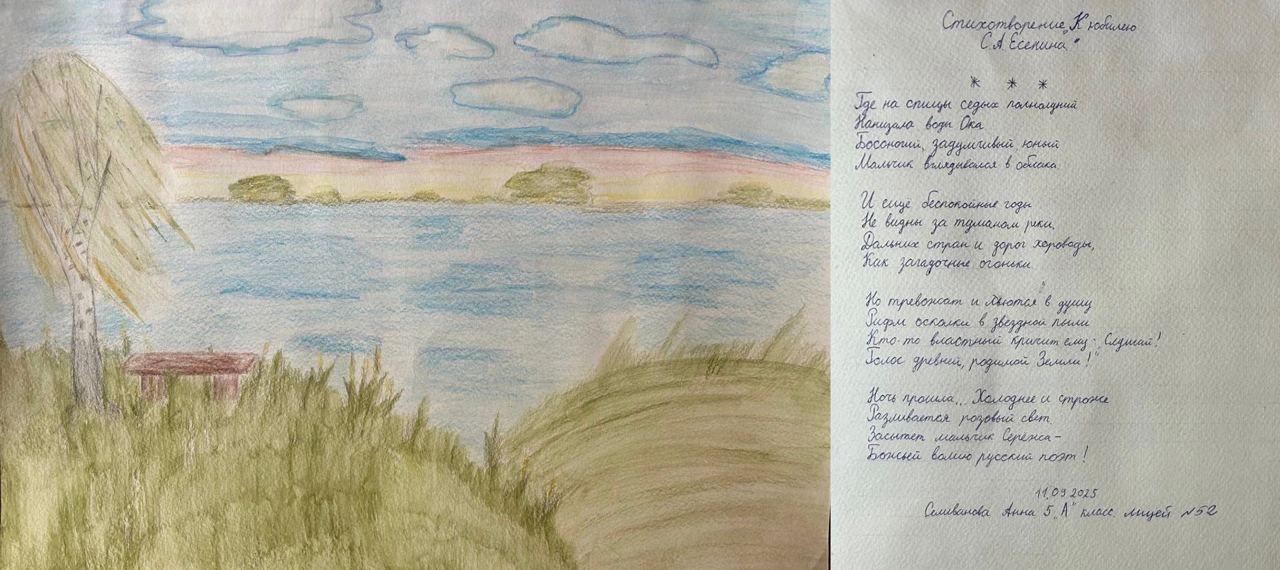 Стихотворение „К юбилею
С.А.Есенина"
* * *
Где на спицы седых полнолуний
Нанизала воды Ока
Босоногий, задумчивый, юный
Мальчик вглядывался в облака.
И еще беспокойные годы
Не видны за туманом реки,
Дальних стран и дорог хороводы,
Как загадочные огоньки.
Но тревожат и льются в душу
Рифм осколки в звездной пыли
Кто-то властный кричит ему: „Слушай!
Голос древней, родимой Земли!"
Ночь прошла... Холоднее и строже
Разливается розовый свет.
Засыпает мальчик Сережа-
Божьей волию русский поэт!
11.09.2025
Селиванова Анна 5 „А" класс. лицей №52